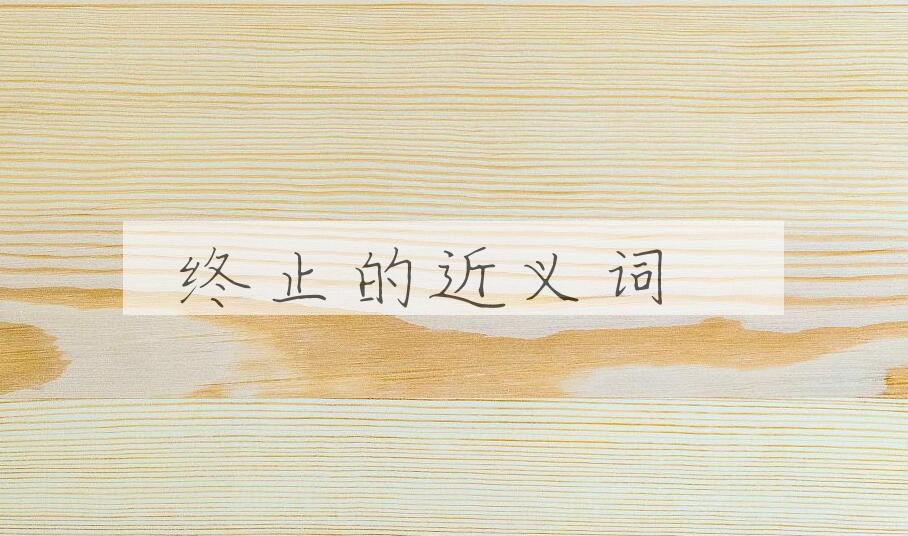 终止的近义词